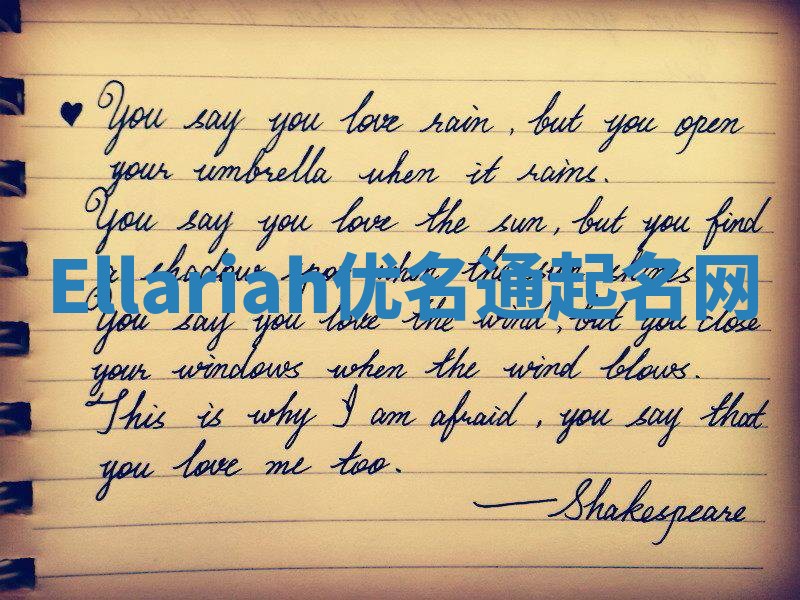 ♥ You say you love rain, but you open
your umbrella when it rains.
You say you love the sun, but you find
a shadow spot when the sun shines
Ellariah优名通起名网
You say you love the wind, but you close
your windows when the wind blows.
This is why I am afraid, you say that
you love me too.
—Shakespeare